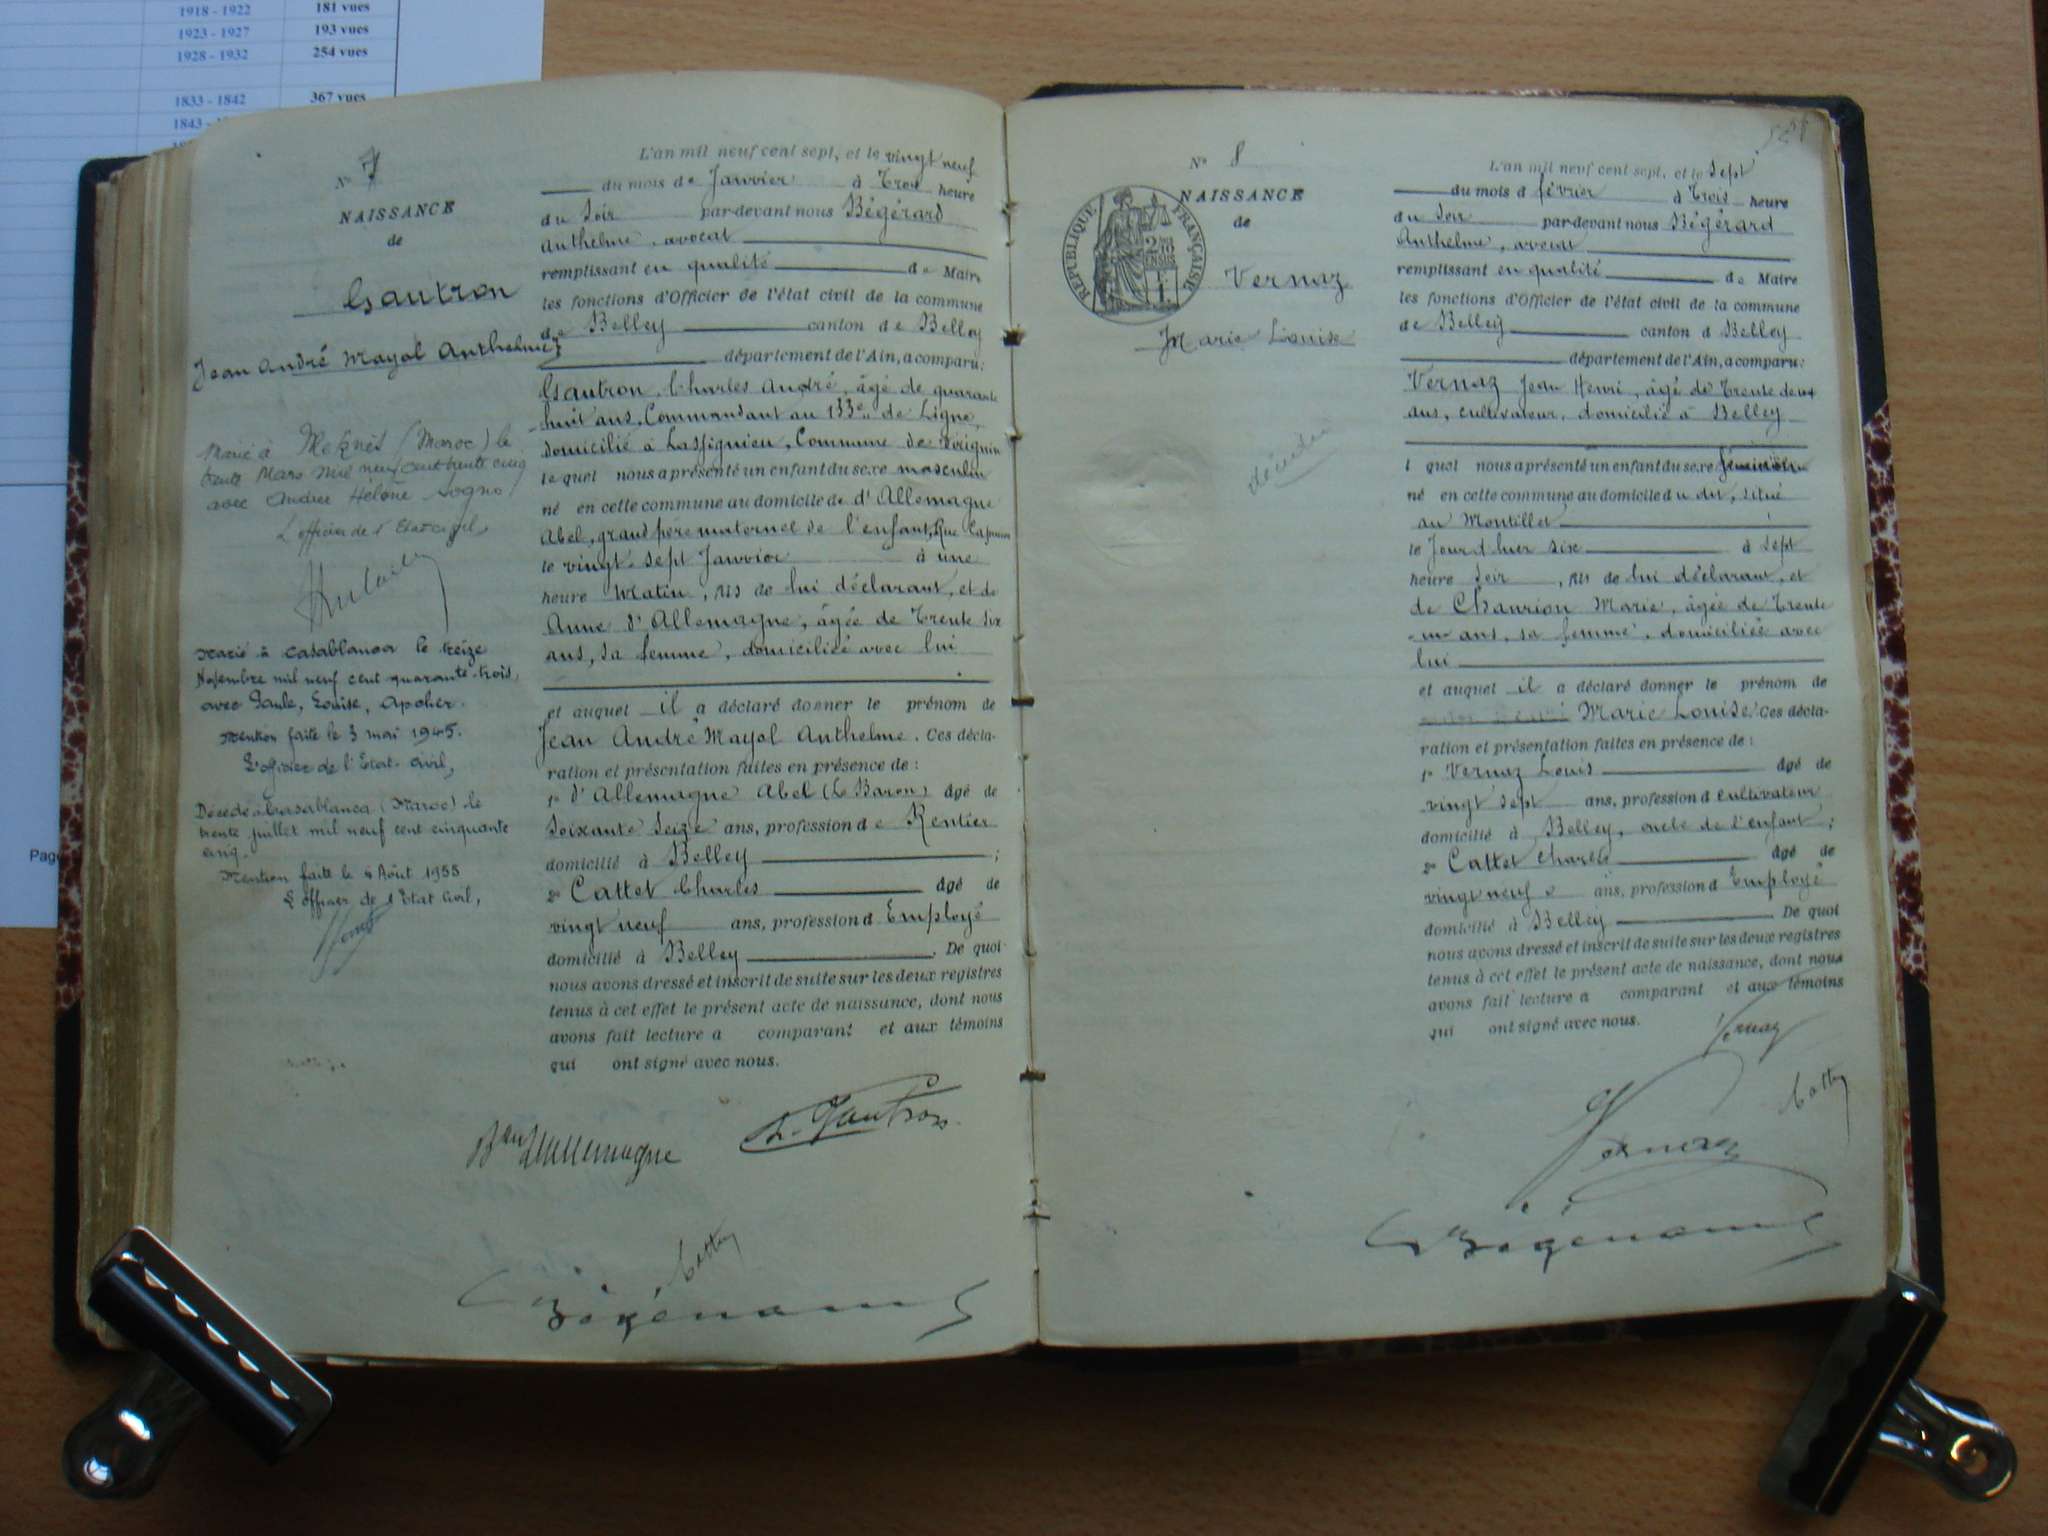 1918 - 1922 181 vues
1923 - 1927 193 vues
1928 - 1932 254 vues
1833 - 1842 367 vues
1843 -
Page
N° 7
NAISSANCE
de
Gautron
Jean André Mayol Anthelme
Marié à Meknès (Maroc) le
trente Mars mil neuf cent trente cinq
avec Andrée Hélène Sogno
L'officier de l'Etat civil,
Marié à Casablanca le treize
Novembre mil neuf cent quarante-trois,
avec Paule, Louise, Apcher.
Mention faite le 3 mai 1945.
L'officier de l'Etat-Civil,
Décédé à Casablanca (Maroc) le
trente juillet mil neuf cent cinquante
cinq.
Mention faite le 4 Août 1955
L'officier de l'Etat Civil,
L'an mil neuf cent sept, et le vingt neuf
du mois de Janvier à Trois heure
du Soir par-devant nous Bégérard
Anthelme, avocat
remplissant en qualité de Maire
les fonctions d'Officier de l'état civil de la commune
de Belley canton de Belley
département de l'Ain, a comparu:
Gautron Charles André, âgé de quarante
huit ans, Commandant au 133e de Ligne,
domicilié à Lassignieu, Commune de Virignin
lequel nous a présenté un enfant du sexe masculin
né en cette commune au domicile de d'Allemagne
Abel, grand père maternel de l'enfant, Rue
le vingt-sept Janvier à une
heure Matin, fils de lui déclarant, et de
Anne d'Allemagne, âgée de Trente six
ans, sa femme, domiciliée avec lui
et auquel il a déclaré donner le prénom de
Jean André Mayol Anthelme. Ces décla-
ration et présentation faites en présence de :
1° d'Allemagne Abel (le Baron) âgé de
Soixante Seize ans, profession de Rentier
domicilié à Belley ;
2° Cattet Charles âgé de
vingt neuf ans, profession d Employé
domicilié à Belley. De quoi
nous avons dressé et inscrit de suite sur les deux registres
tenus à cet effet le présent acte de naissance, dont nous
avons fait lecture a comparant et aux témoins
qui ont signé avec nous.
Bon d'Allemagne
Ch. Gautron
Bégérard
521
N° 8
NAISSANCE
de
RÉPUBLIQUE FRANÇAISE
Vernaz
Marie Louise
L'an mil neuf cent sept, et le Sept
du mois d février à Trois heure
du Soir par-devant nous Bégérard
Anthelme, avocat
remplissant en qualité de Maire
les fonctions d'Officier de l'état civil de la commune
de Belley canton d Belley
département de l'Ain, a comparu:
Vernaz Jean Henri, âgé de Trente deux
ans, cultivateur, domicilié à Belley
l quel nous a présenté un enfant du sexe féminin
né en cette commune au domicile du dit, situé
au Montillet
le Jour d'hier six à Sept
heure Soir, fils de lui déclarant, et
de Chaurion Marie, âgée de Trente
un ans, sa femme, domiciliée avec
lui
et auquel il a déclaré donner le prénom de
Marie Louise. Ces décla-
ration et présentation faites en présence de :
1° Vernaz Louis âgé de
vingt sept ans, profession d cultivateur
domicilié à Belley, oncle de l'enfant ;
2° Cattet Charles âgé de
vingt neuf ans, profession d Employé
domicilié à Belley. De quoi
nous avons dressé et inscrit de suite sur les deux registres
tenus à cet effet le présent acte de naissance, dont nous
avons fait lecture a comparant et aux témoins
qui ont signé avec nous.
Vernaz
Vernaz
Bégérard